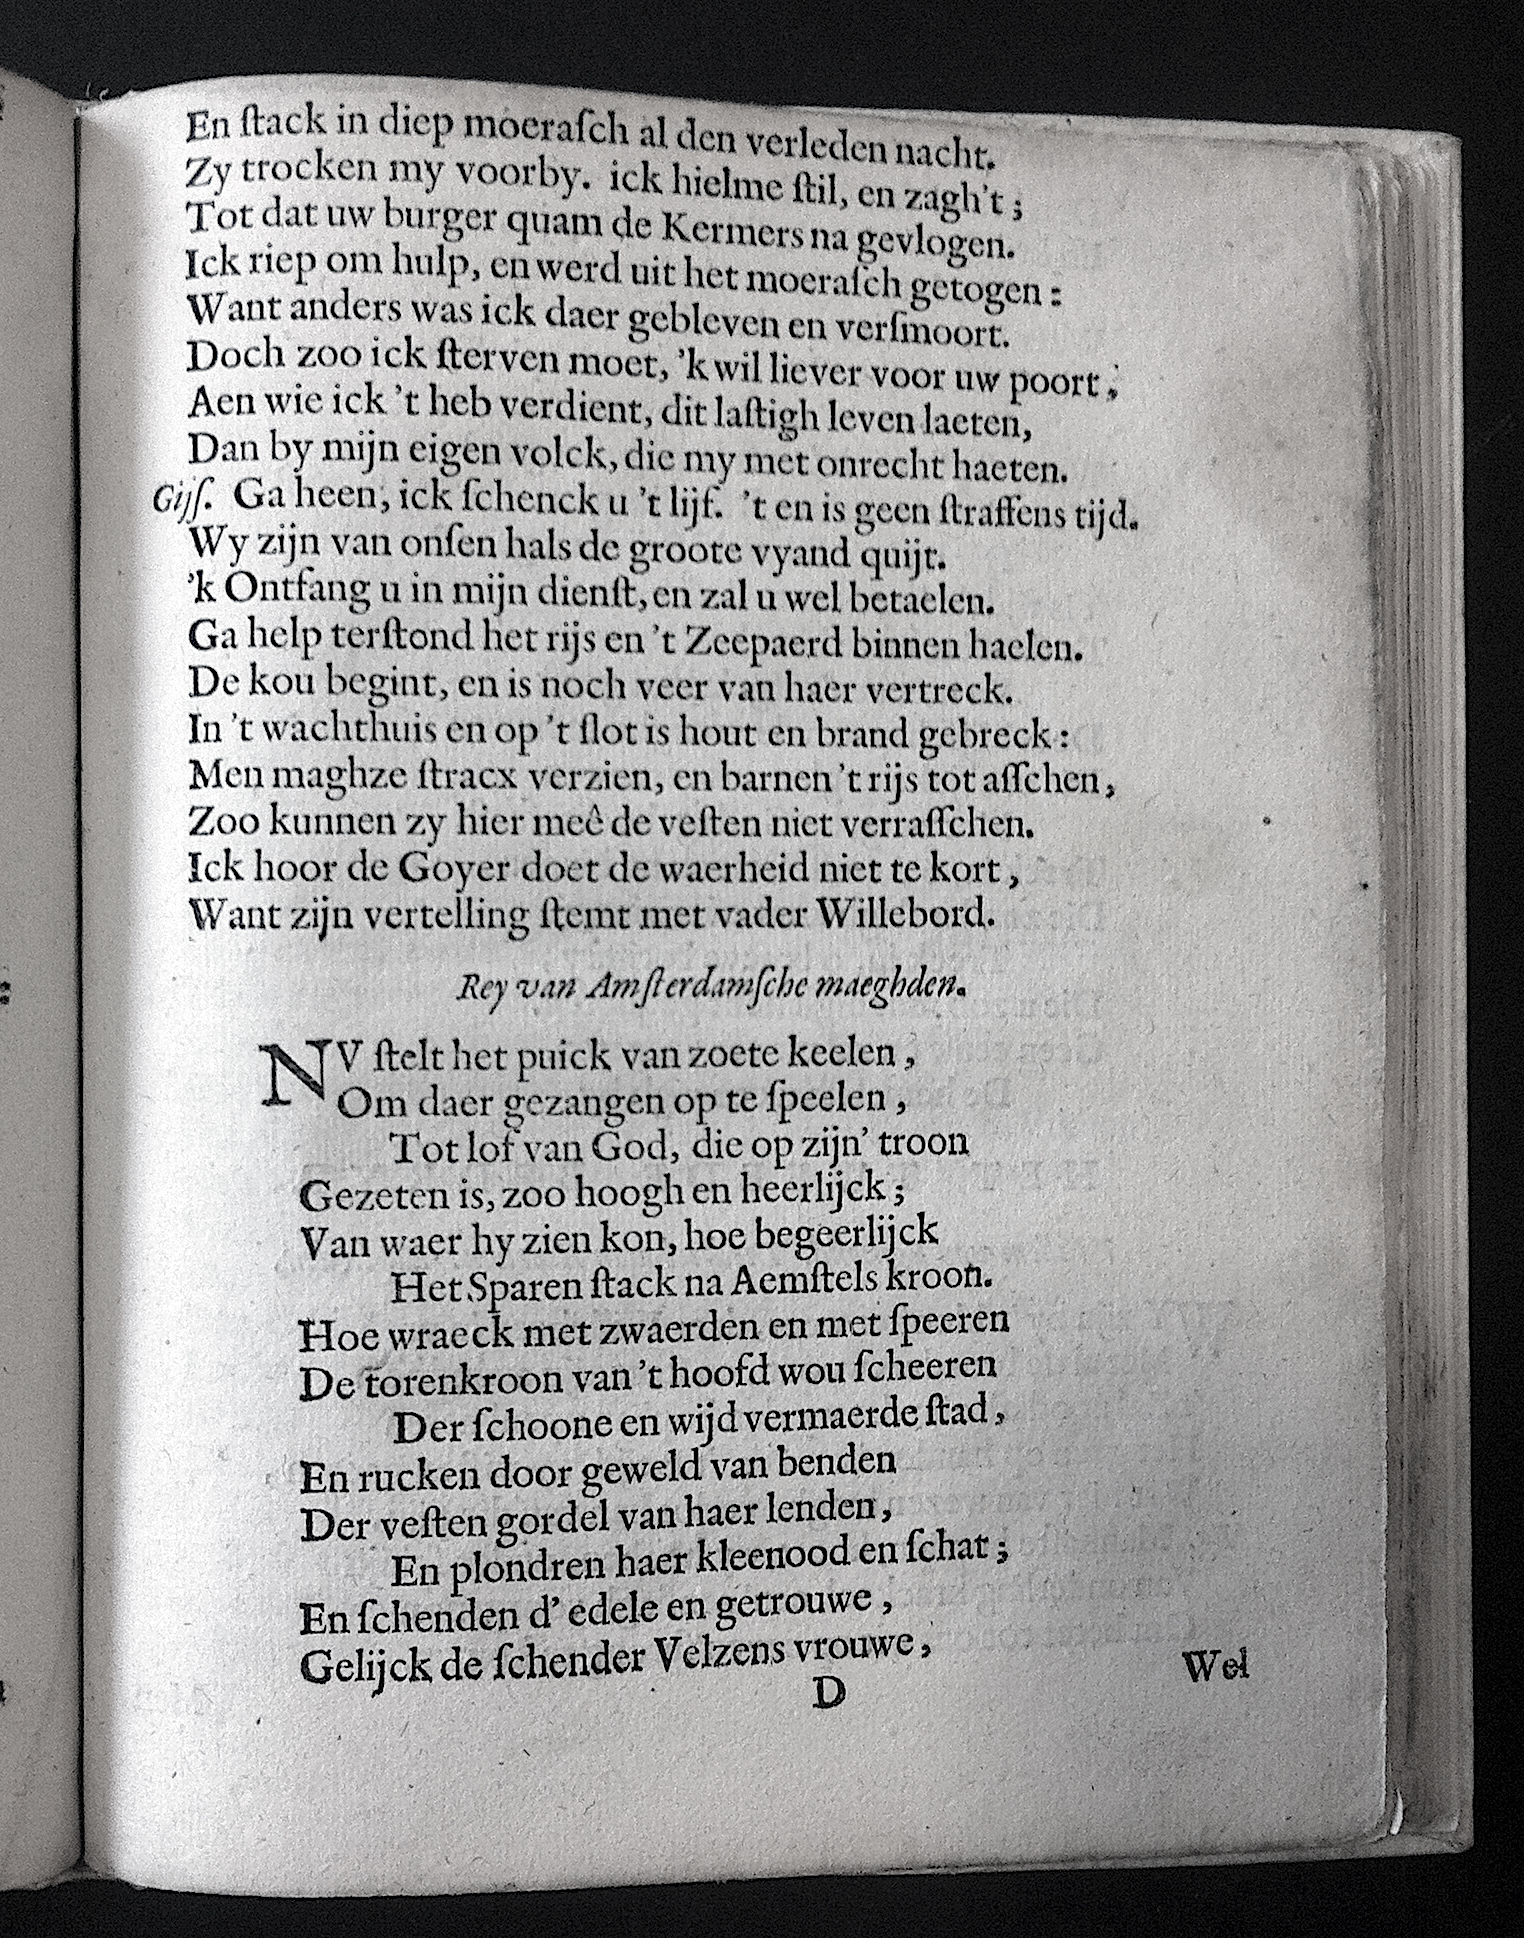 En ſtack in diep moeraſch al den verleden nacht.
Zy trocken my voorby. ick hielme ſtil, en zagh't;
Tot dat uw burger quam de Kermers na gevlogen.
Ick riep om hulp, en werd uit het moeraſch getogen:
Want anders was ick daer gebleven en verſmoort.
Doch zoo ick ſterven moet, 'k wil liever voor uw poort,
Aen wie ick 't heb verdient, dit laſtigh leven laeten,
Dan by mijn eigen volck, die my met onrecht haeten.
Gijſ. Ga heen, ick ſchenck u 't lijf. 't en is geen ſtraffens tijd.
Wy zijn van onſen hals de groote vyand quijt.
'k Ontfang u in mijn dienſt, en zal u wel betaelen.
Ga help terſtond het rijs en 't Zeepaerd binnen haelen.
De kou begint, en is noch veer van haer vertreck.
In 't wachthuis en op 't ſlot is hout en brand gebreck:
Men maghze ſtracx verzien, en barnen 't rijs tot aſſchen,
Zoo kunnen zy hier meê de veſten niet verraſſchen.
Ick hoor de Goyer doet de waerheid niet te kort,
Want zijn vertelling ſtemt met vader Willebord.
Rey van Amſterdamſche maeghden.
NV ſtelt het puick van zoete keelen,
Om daer gezangen op te ſpeelen,
Tot lof van God, die op zijn' troon
Gezeten is, zoo hoogh en heerlijck;
Van waer hy zien kon, hoe begeerlijck
Het Sparen ſtack na Aemſtels kroon.
Hoe wraeck met zwaerden en met ſpeeren
De torenkroon van 't hoofd wou ſcheeren
Der ſchoone en wijd vermaerde ſtad,
En rucken door geweld van benden
Der veſten gordel van haer lenden,
En plondren haer kleenood en ſchat;
En ſchenden d' edele en getrouwe,
Gelijck de ſchender Velzens vrouwe,
D Wel